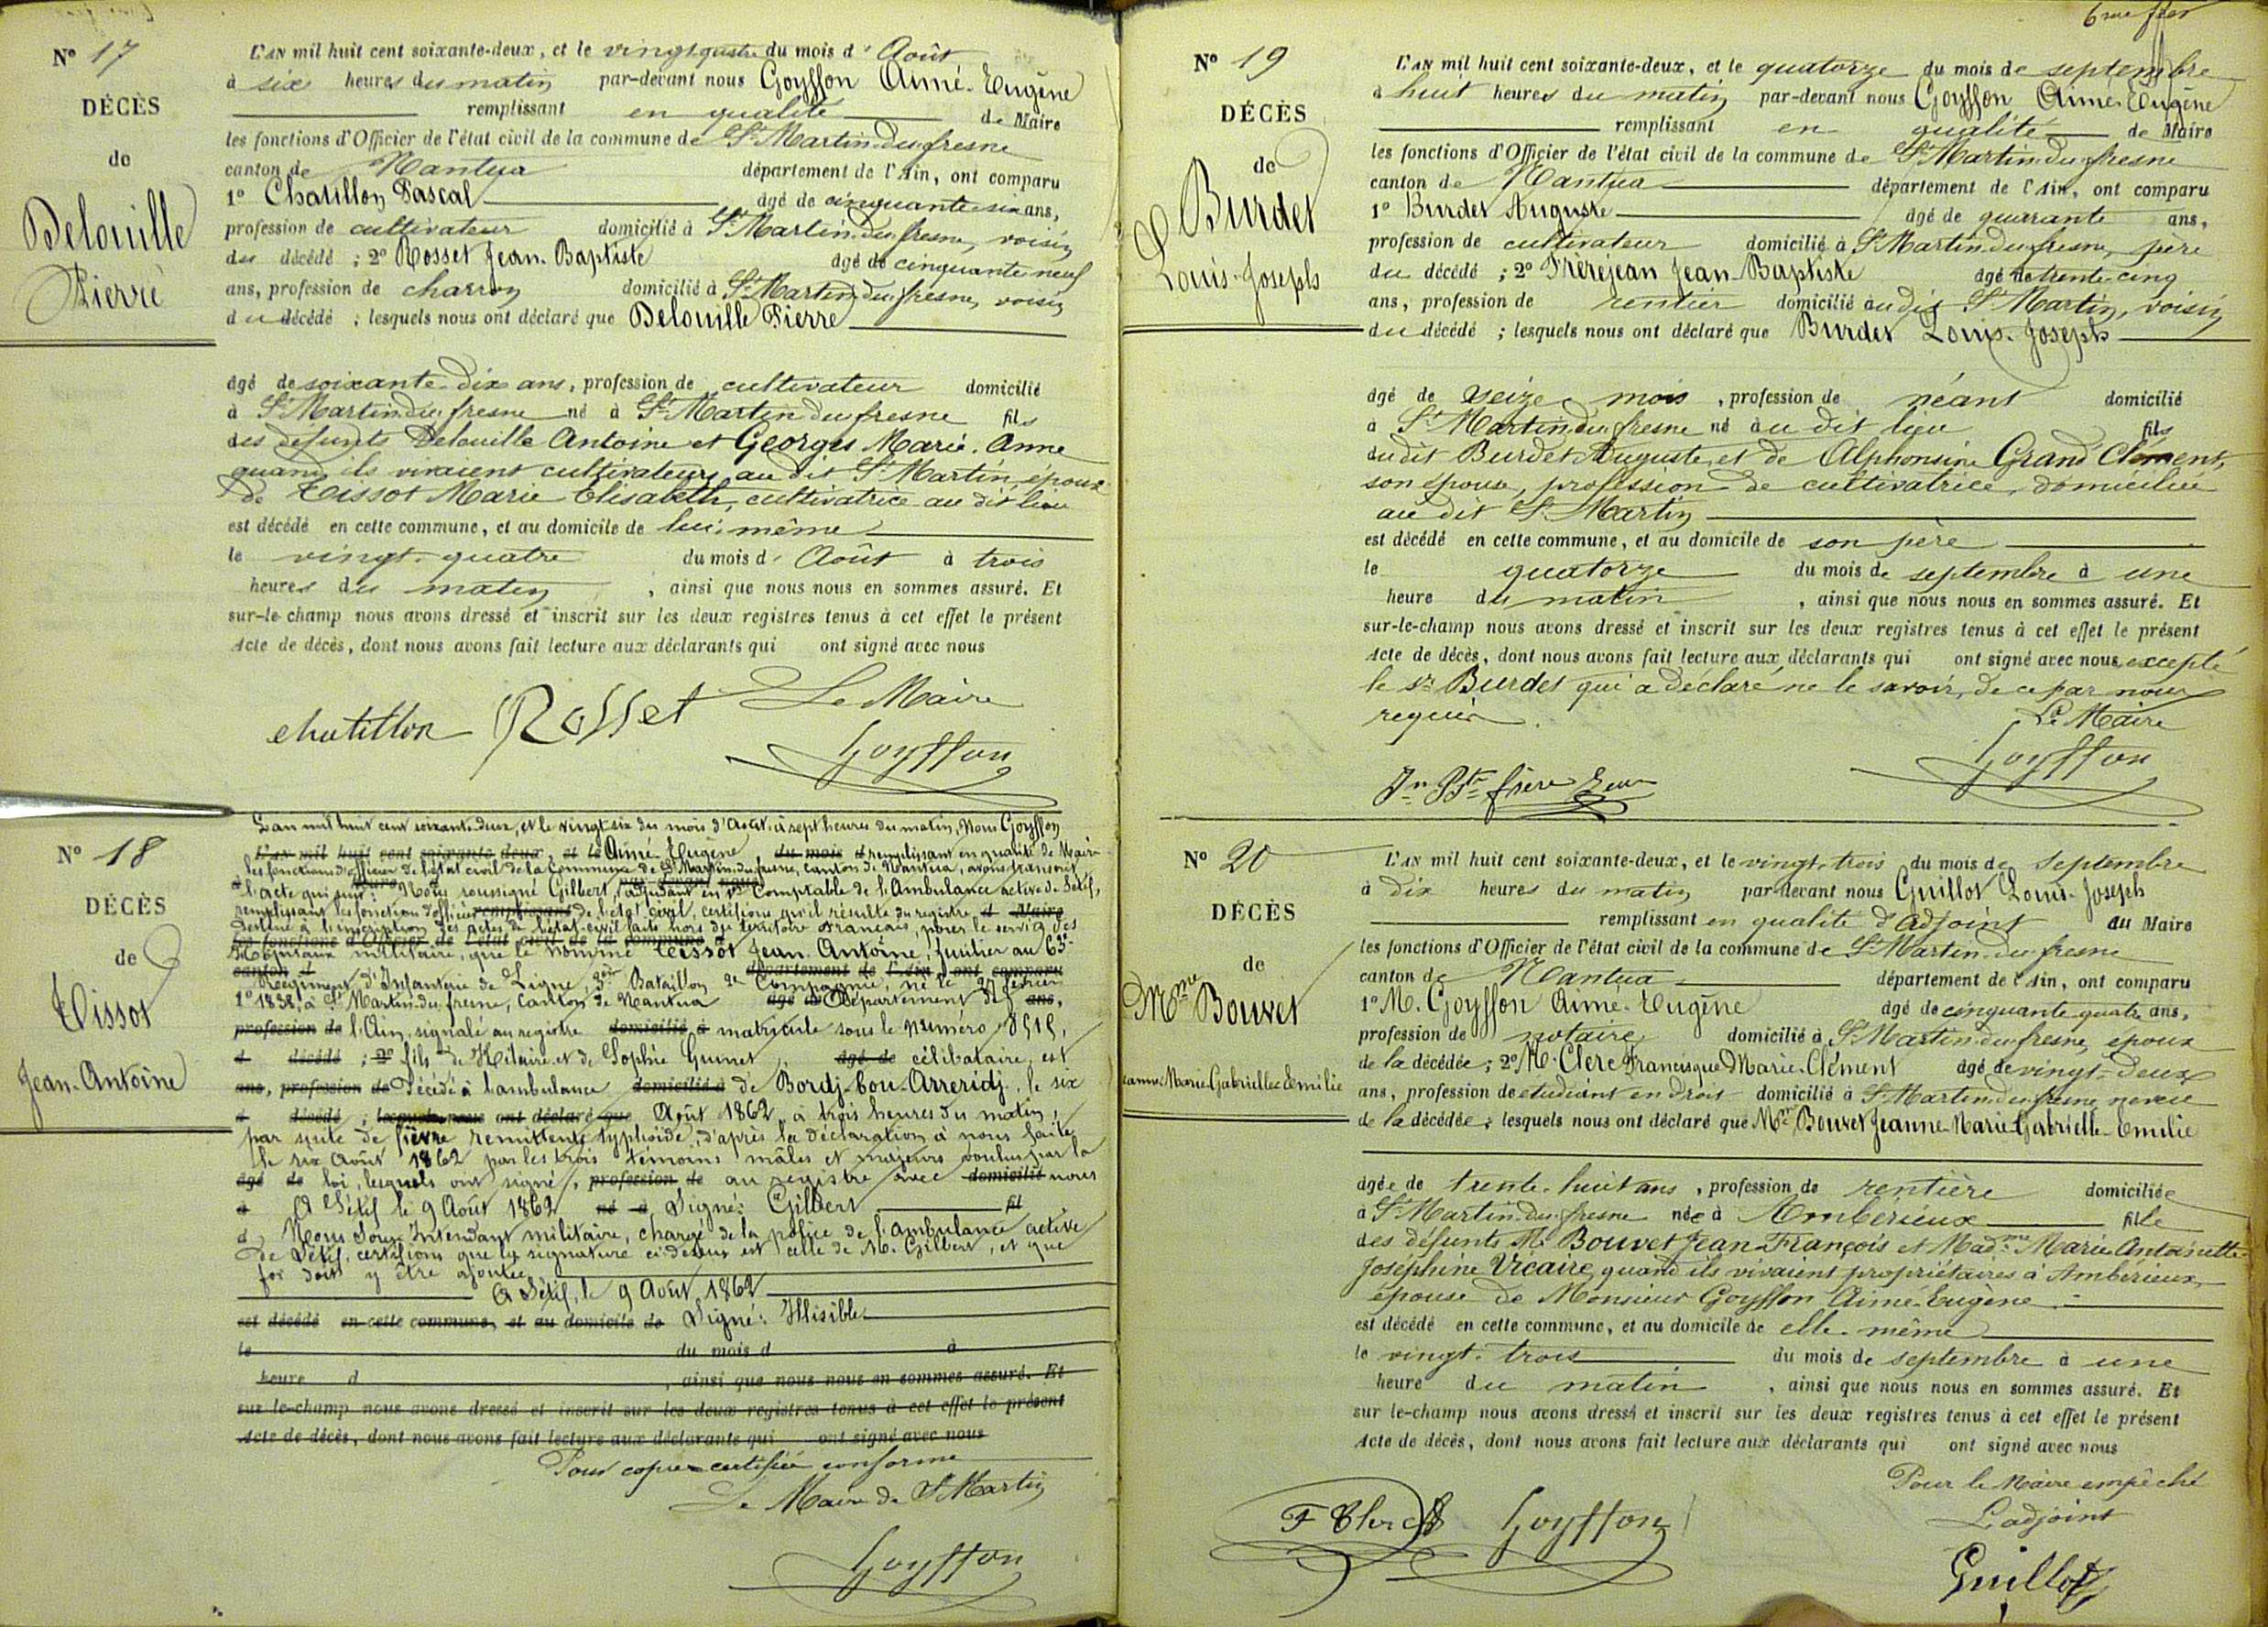 Nº 17
DÉCÈS
de
Delouille
Pierre
L'AN mil huit cent soixante-deux, et le vingt quatre du mois d'Août
à six heures du matin par-devant nous Goyffon Aimé-Eugène
remplissant en qualité de Maire
les fonctions d'Officier de l'état civil de la commune de St Martin-du-fresne
canton de Nantua département de l'Ain, ont comparu
1º Chatillon Pascal âgé de cinquante-six ans,
profession de cultivateur domicilié à St Martin-du-fresne, voisin
du décédé ; 2º Rosset Jean-Baptiste âgé de cinquante neuf
ans, profession de charron domicilié à St Martin-du-fresne, voisin
du décédé ; lesquels nous ont déclaré que Delouille Pierre
âgé de soixante-dix ans, profession de cultivateur domicilié
à St Martin-du-fresne né à St Martin-du-fresne fils
des défunts Delouille Antoine et Georges Marie-Anne
quand ils vivaient cultivateurs au dit St Martin, époux
de Tissot Marie Elisabeth, cultivatrice au dit lieu
est décédé en cette commune, et au domicile de lui-même
le vingt-quatre du mois d'Août à trois
heures du matin, ainsi que nous nous en sommes assuré. Et
sur-le-champ nous avons dressé et inscrit sur les deux registres tenus à cet effet le présent
Acte de décès, dont nous avons fait lecture aux déclarants qui ont signé avec nous
Le Maire
chatillon Rosset
Goyffon
Nº 18
DÉCÈS
de
Tissot
Jean-Antoine
L'an mil huit cent soixante-deux, et le vingt-six du mois d'Août, à sept heures du matin, Nous Goyffon
L'AN mil huit cent soixante-deux, et le Aimé-Eugène du mois d remplissant en qualité de Maire
les fonctions d'officier de l'état civil de la Commune de St Martin-du-fresne, canton de Nantua, avons transcrit
l'acte qui suit : Nous soussigné Gilbert, adjudant en Comptable de l'Ambulance active de Sétif,
remplissant les fonctions d'officier remplissant de l'état civil, certifions qu'il résulte du registre d Maire
destiné à l'inscription des actes de l'état-civil faits hors du territoire Français, pour le service des
les fonctions d'Officier de l'état civil de la commune d
Hôpitaux militaire, que le nommé Tissot Jean-Antoine, fusilier au 63e
canton d département de l'Ain, ont comparu
Régiment d'Infanterie de Ligne, 3e Bataillon 2e Compagnie, né le 27 février
1º 1838, à St Martin-du-fresne, canton de Nantua âgé de Département de ans,
profession de l'Ain, signalé au registre domicilié à matricule sous le numéro 8515,
d décédé ; 2º fils de Hilaire et de Sophie Gunnet, âgé de célibataire, est
ans, profession de Décédé à l'ambulance domicilié à de Bordj-bou-Arreridj, le six
d décédé ; lesquels nous ont déclaré que Août 1862, à trois heures du matin,
par suite de fièvre remittente typhoïde, d'après la déclaration à nous faite
le six Août 1862 par les trois témoins mâles et majeurs voulus par la
âgé de loi, lesquels ont signé, profession de au registre avec domicilié nous
à A Sétif le 9 Août 1862 né à Signé: Gilbert fil
d Nous Sous-Intendant militaire, chargé de la police de l'Ambulance active
de Sétif, certifions que la signature ci-dessus est celle de M. Gilbert, et que
foi doit y être ajoutée
A Sétif, le 9 Août 1862
est décédé en cette commune, et au domicile de Signé: Illisible
le du mois d à
heure d , ainsi que nous nous en sommes assuré. Et
sur le-champ nous avons dressé et inscrit sur les deux registres tenus à cet effet le présent
Acte de décès, dont nous avons fait lecture aux déclarants qui ont signé avec nous
Pour copie certifiée conforme
Le Maire de St Martin
Goyffon
Nº 19
DÉCÈS
de
Burdet
Louis-Joseph
L'AN mil huit cent soixante-deux, et le quatorze du mois de septembre
à huit heures du matin par-devant nous Goyffon Aimé-Eugène
remplissant en qualité de Maire
les fonctions d'Officier de l'état civil de la commune de St Martin-du-fresne
canton de Nantua département de l'Ain, ont comparu
1º Burdet Auguste âgé de quarante ans,
profession de cultivateur domicilié à St Martin-du-fresne, père
du décédé ; 2º Frèrejean Jean-Baptiste âgé de trente-cinq
ans, profession de rentier domicilié au dit St Martin, voisin
du décédé ; lesquels nous ont déclaré que Burdet Louis-Joseph
âgé de seize mois, profession de néant domicilié
à St Martin-du-fresne né au dit lieu fils
du dit Burdet Auguste et de Alphonsine Grand Clément,
son épouse, profession de cultivatrice, domiciliée
au dit St Martin
est décédé en cette commune, et au domicile de son père
le quatorze du mois de septembre à une
heure du matin, ainsi que nous nous en sommes assuré. Et
sur-le-champ nous avons dressé et inscrit sur les deux registres tenus à cet effet le présent
Acte de décès, dont nous avons fait lecture aux déclarants qui ont signé avec nous, excepté
le sr Burdet qui a déclaré ne le savoir, de ce par nous
requis.
Le Maire
Goyffon
Jn Bte frère Jean
Nº 20
DÉCÈS
de
Mme Bouvet
Jeanne-Marie-Gabrielle-Emilie
L'AN mil huit cent soixante-deux, et le vingt-trois du mois de septembre
à dix heures du matin par-devant nous Guillot Louis-Joseph
remplissant en qualité d'adjoint au Maire
les fonctions d'Officier de l'état civil de la commune de St Martin-du-fresne
canton de Nantua département de l'Ain, ont comparu
1º M. Goyffon Aimé-Eugène âgé de cinquante quatre ans,
profession de notaire domicilié à St Martin-du-fresne, époux
de la décédée ; 2º M. Clerc Francisque Marie-Clément âgé de vingt-deux
ans, profession de étudiant en droit domicilié à St Martin-du-fresne, neveu
de la décédée ; lesquels nous ont déclaré que Me Bouvet Jeanne-Marie-Gabrielle-Emilie
âgée de trente-huit ans, profession de rentière domiciliée
à St Martin-du-fresne née à Ambérieux fille
des défunts M. Bouvet Jean-François et Madme Marie-Antoinette-
Joséphine Vicaire, quand ils vivaient propriétaires à Ambérieux,
épouse de Monsieur Goyffon Aimé-Eugène.
est décédé en cette commune, et au domicile de elle-même
le vingt-trois du mois de septembre à une
heure du matin, ainsi que nous nous en sommes assuré. Et
sur le-champ nous avons dressé et inscrit sur les deux registres tenus à cet effet le présent
Acte de décès, dont nous avons fait lecture aux déclarants qui ont signé avec nous
Pour le Maire empêché
L'adjoint
F Clerc Goyffon
Guillot